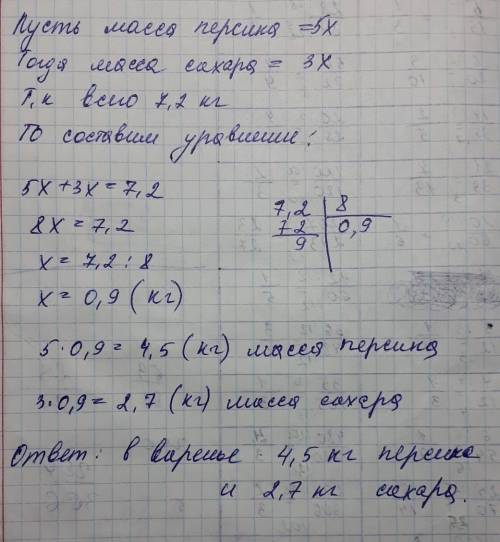 Пусть масса персика = 5х
Тогда масса сахара = 3х
Т,к всего 7,2 кг
То составим уравнение:
5х + 3х = 7,2
8х = 7,2
х = 7,2 : 8
х = 0,9 (кг)
7,2 | 8
72 | 0,9
9
5 · 0,9 = 4,5 (кг) масса персика
3 · 0,9 = 2,7 (кг) масса сахара
Ответ: в варенье 4,5 кг персика
и 2,7 кг сахара.